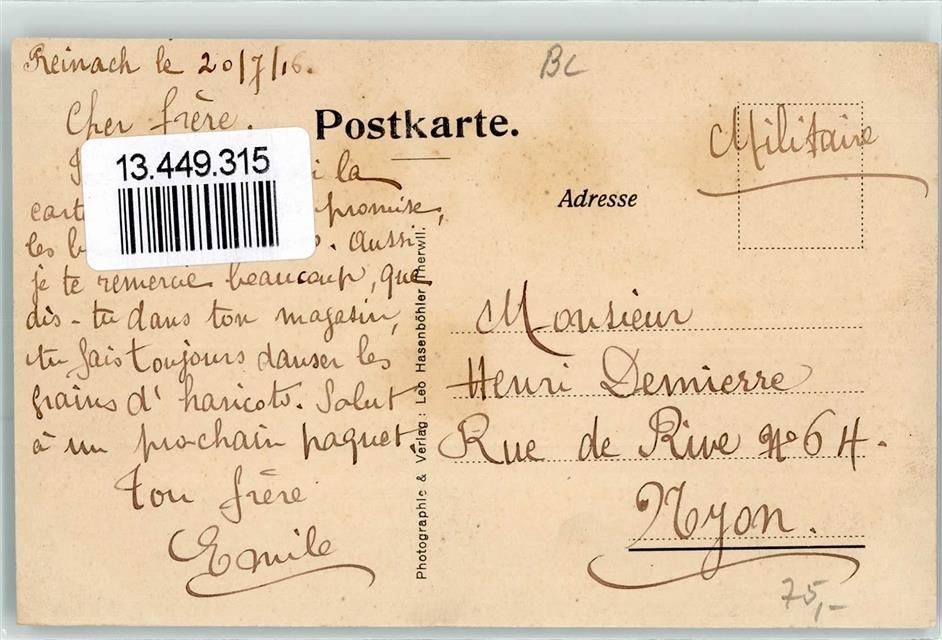 Reinach le 20/7/16.
BC
Cher frère.
Postkarte.
Militaire
13.449.315
la
promise,
les
Aussi
Adresse
je te remercie beaucoup, que
dis-tu dans ton magasin,
tu fais toujours danser les
grains d'haricots. Salut
à un prochain paquet.
Ton frère
Emile
Photographie & Verlag: Leo Hasenböhler Therwil.
Monsieur
Henri Demierre
Rue de Rive No 64.
Nyon.
75,-